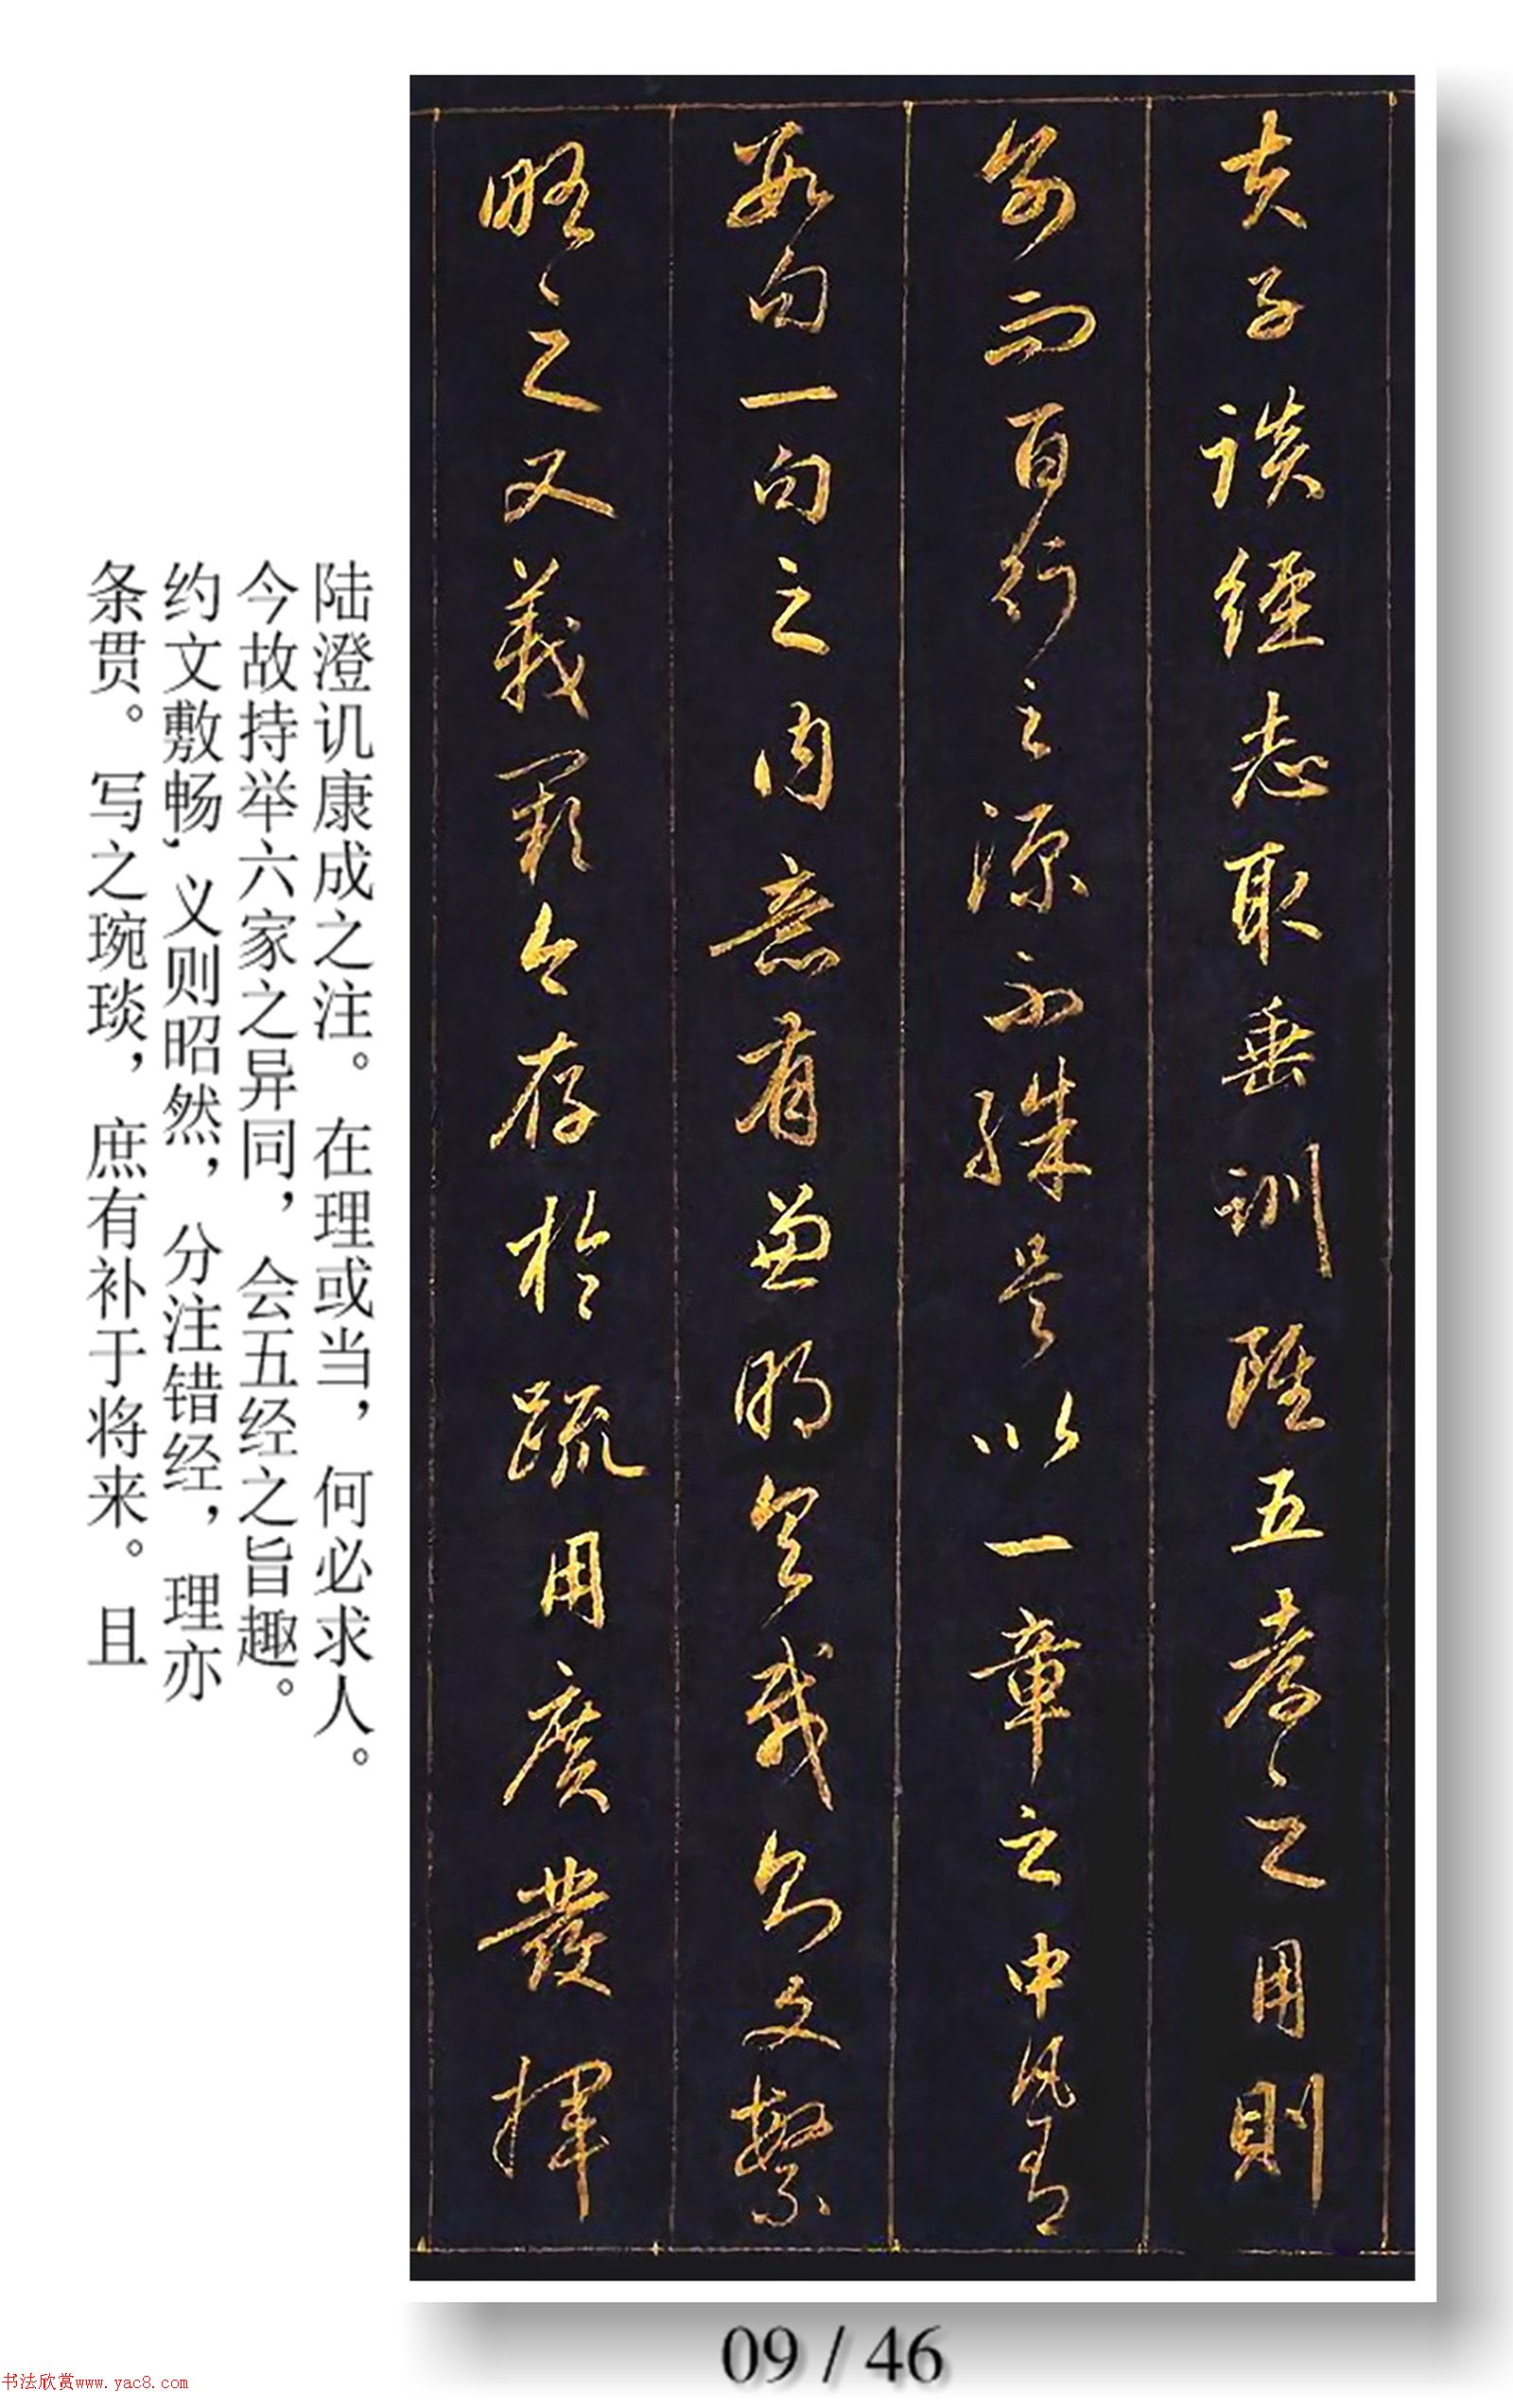 夫子談經志取垂訓雖五孝之用則
別而百行之源不殊是以一章之中凡有
數句一句之內意有兼明具載則文繁
略之又義闕今存於疏用廣發揮
陆澄讥康成之注。在理或当，何必求人。
今故持举六家之异同，会五经之旨趣。
约文敷畅，义则昭然，分注错经，理亦
条贯。写之琬琰，庶有补于将来。且
09 / 46
书法欣赏www.yac8.com